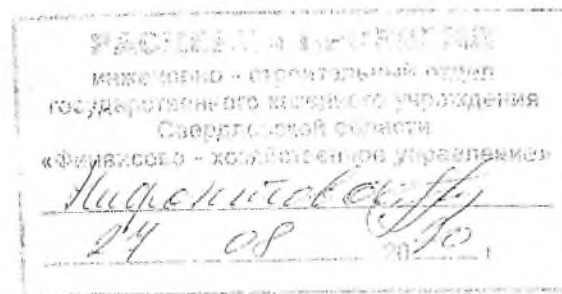 инженерно - строительный отдел
государственного казенного учреждения
Свердловской области
«Финансово - хозяйственное управление»
24 08 2020 г